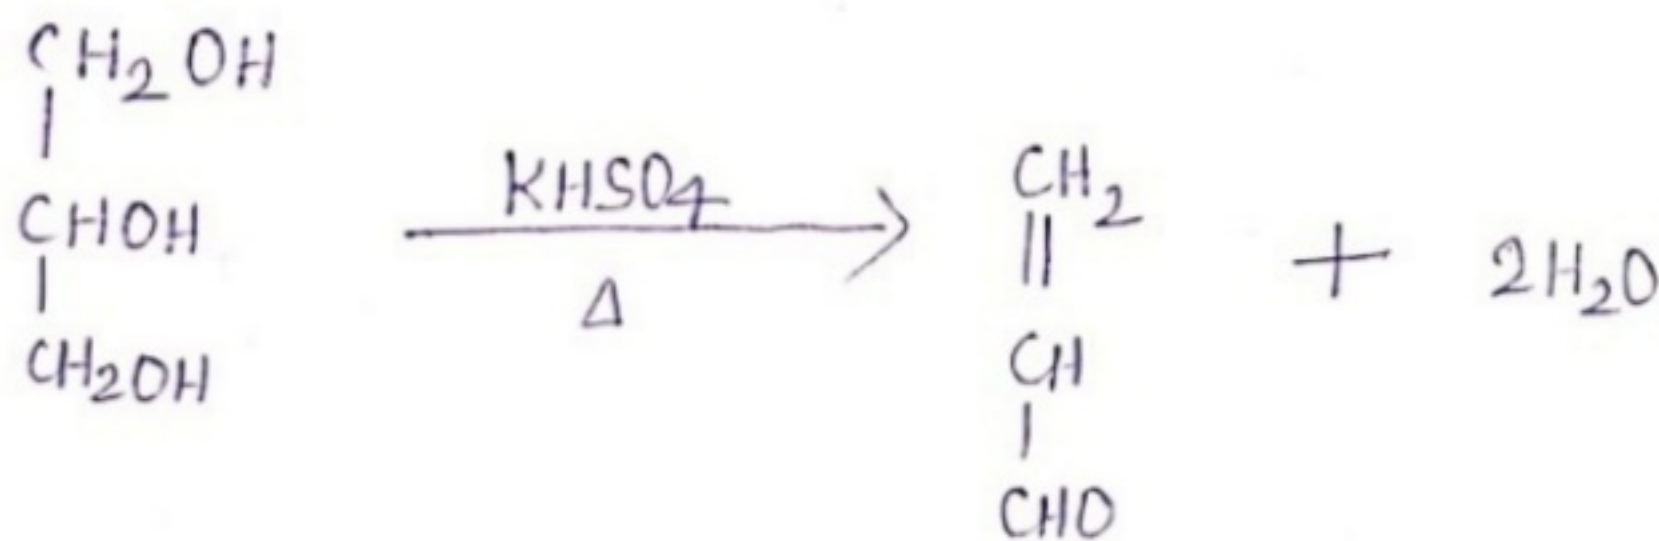 CH2OH
|
CHOH
|
CH2OH
KHSO4
Δ
CH2
||
CH
|
CHO
+ 2H2O